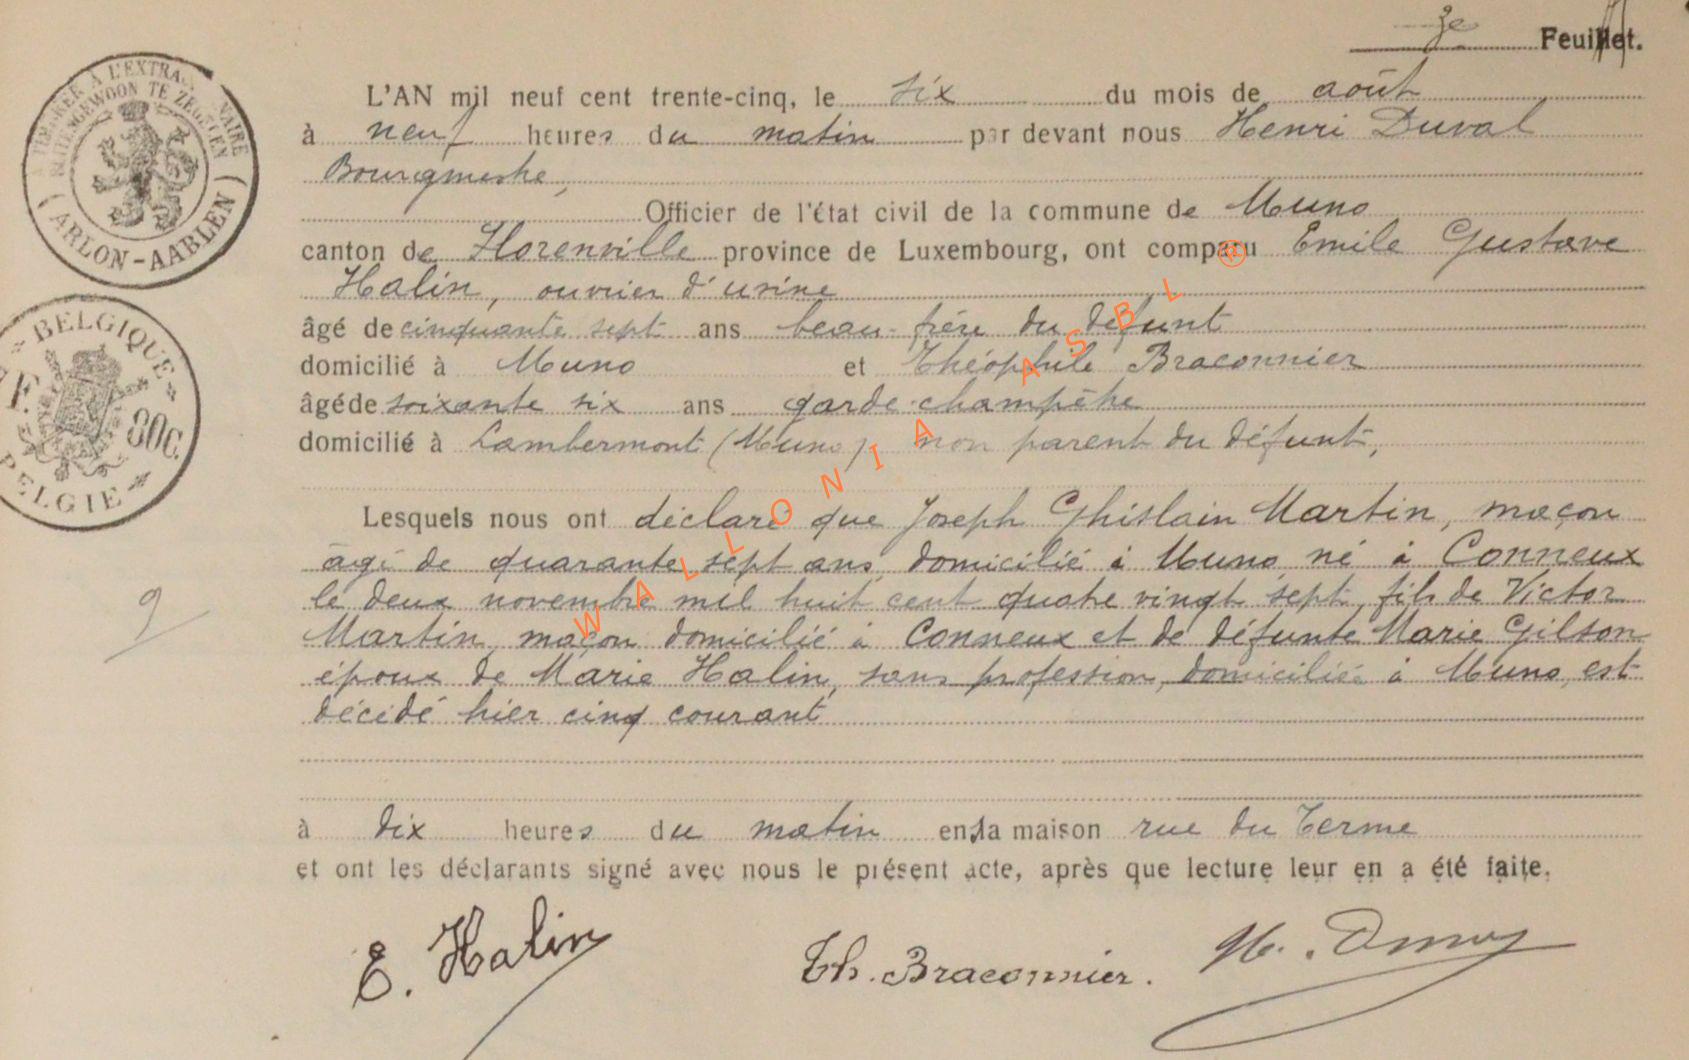 3e Feuillet.
TIMBRER À L'EXTRAORDINAIRE
BUITENGEWOON TE ZEGELEN
( ARLON-AARLEN )
L'AN mil neuf cent trente-cinq, le six du mois de août
à neuf heures du matin par devant nous Henri Duval
Bourgmestre,
Officier de l'état civil de la commune de Muno
canton de Florenville province de Luxembourg, ont comparu Emile Gustave
Halin, ouvrier d'usine
âgé de cinquante sept ans beau-frère du défunt
domicilié à Muno et Théophile Braconnier
âgé de soixante six ans garde-champêtre
domicilié à Lambermont (Muno) non parent du défunt,
BELGIQUE
F 80C.
BELGIE
Lesquels nous ont déclaré que Joseph Ghislain Martin, maçon
âgé de quarante sept ans, domicilié à Muno, né à Conneux
le deux novembre mil huit cent quatre vingt sept, fils de Victor
Martin, maçon domicilié à Conneux et de défunte Marie Gilson
époux de Marie Halin, sans profession, domiciliée à Muno, est
décédé hier cinq courant
9
à dix heures du matin en sa maison rue du Terme
et ont les déclarants signé avec nous le présent acte, après que lecture leur en a été faite.
E. Halin
Th. Braconnier.
WALLONIA ASBL ®